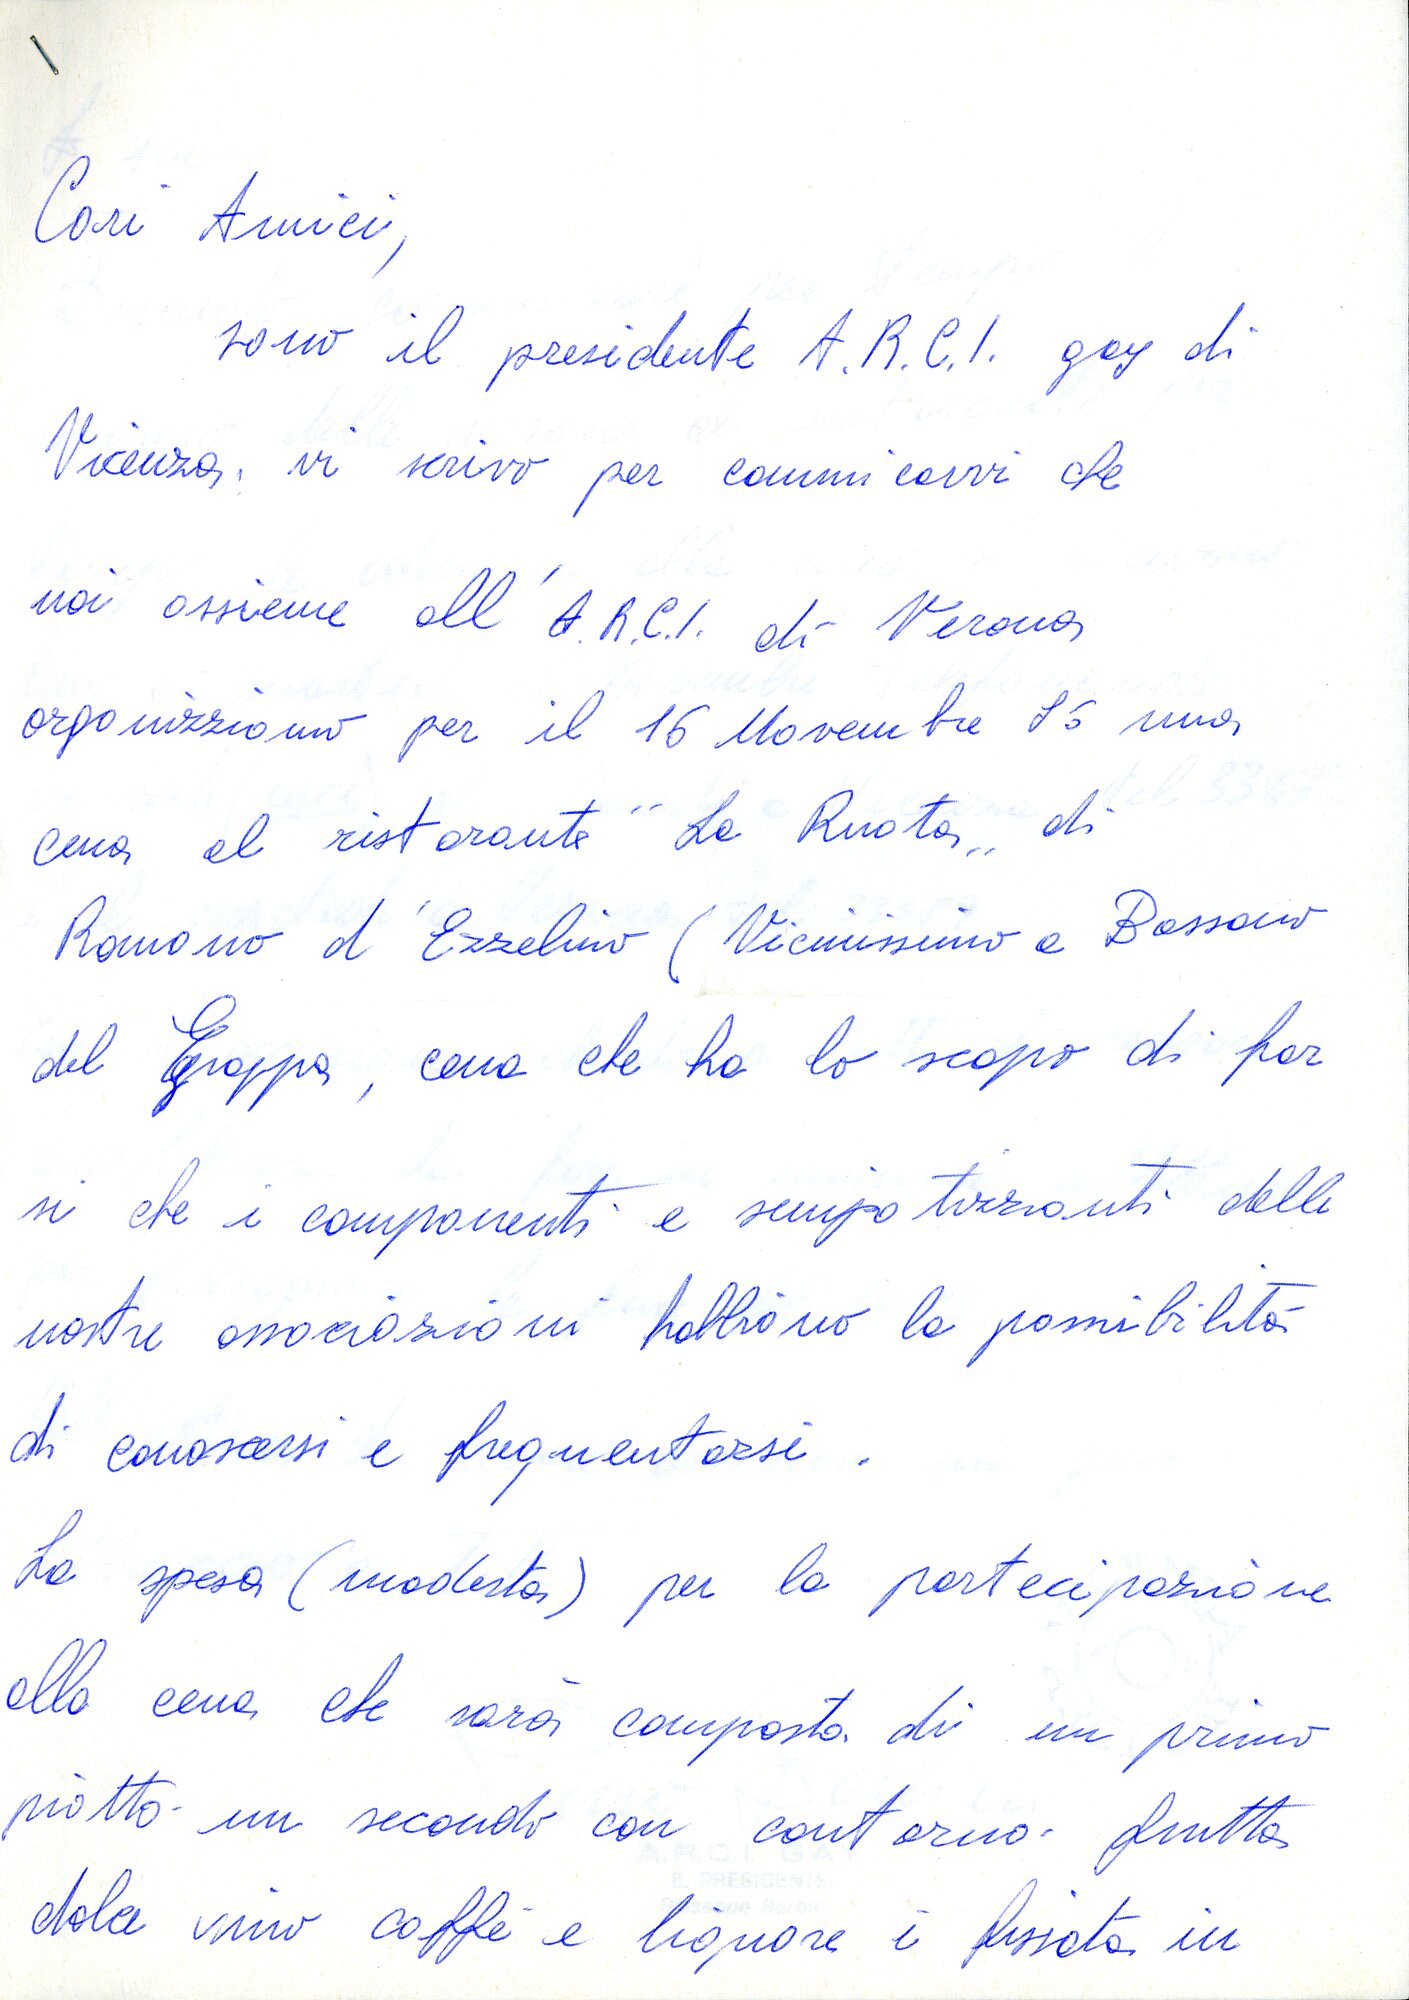 Cari Amici,
sono il presidente A.R.C.I. gay di
Vicenza. vi scrivo per comunicarvi che
noi assieme all'A.R.C.I. di Verona
organizziamo per il 16 Novembre 85 una
cena al ristorante "La Ruota" di
Romano d'Ezzelino (Vicinissimo a Bassano
del Grappa, cena che ha lo scopo di far
si che i componenti e simpatizzanti delle
nostre associazioni habbiano la possibilità
di conoscersi e frequentarsi.
La spesa (modesta) per la partecipazione
alla cena che sarà composta di un primo
piatto - un secondo con contorno - frutta
dolce vino caffè e liquore è fissata in
A.R.C.I. GAY
IL PRESIDENTE